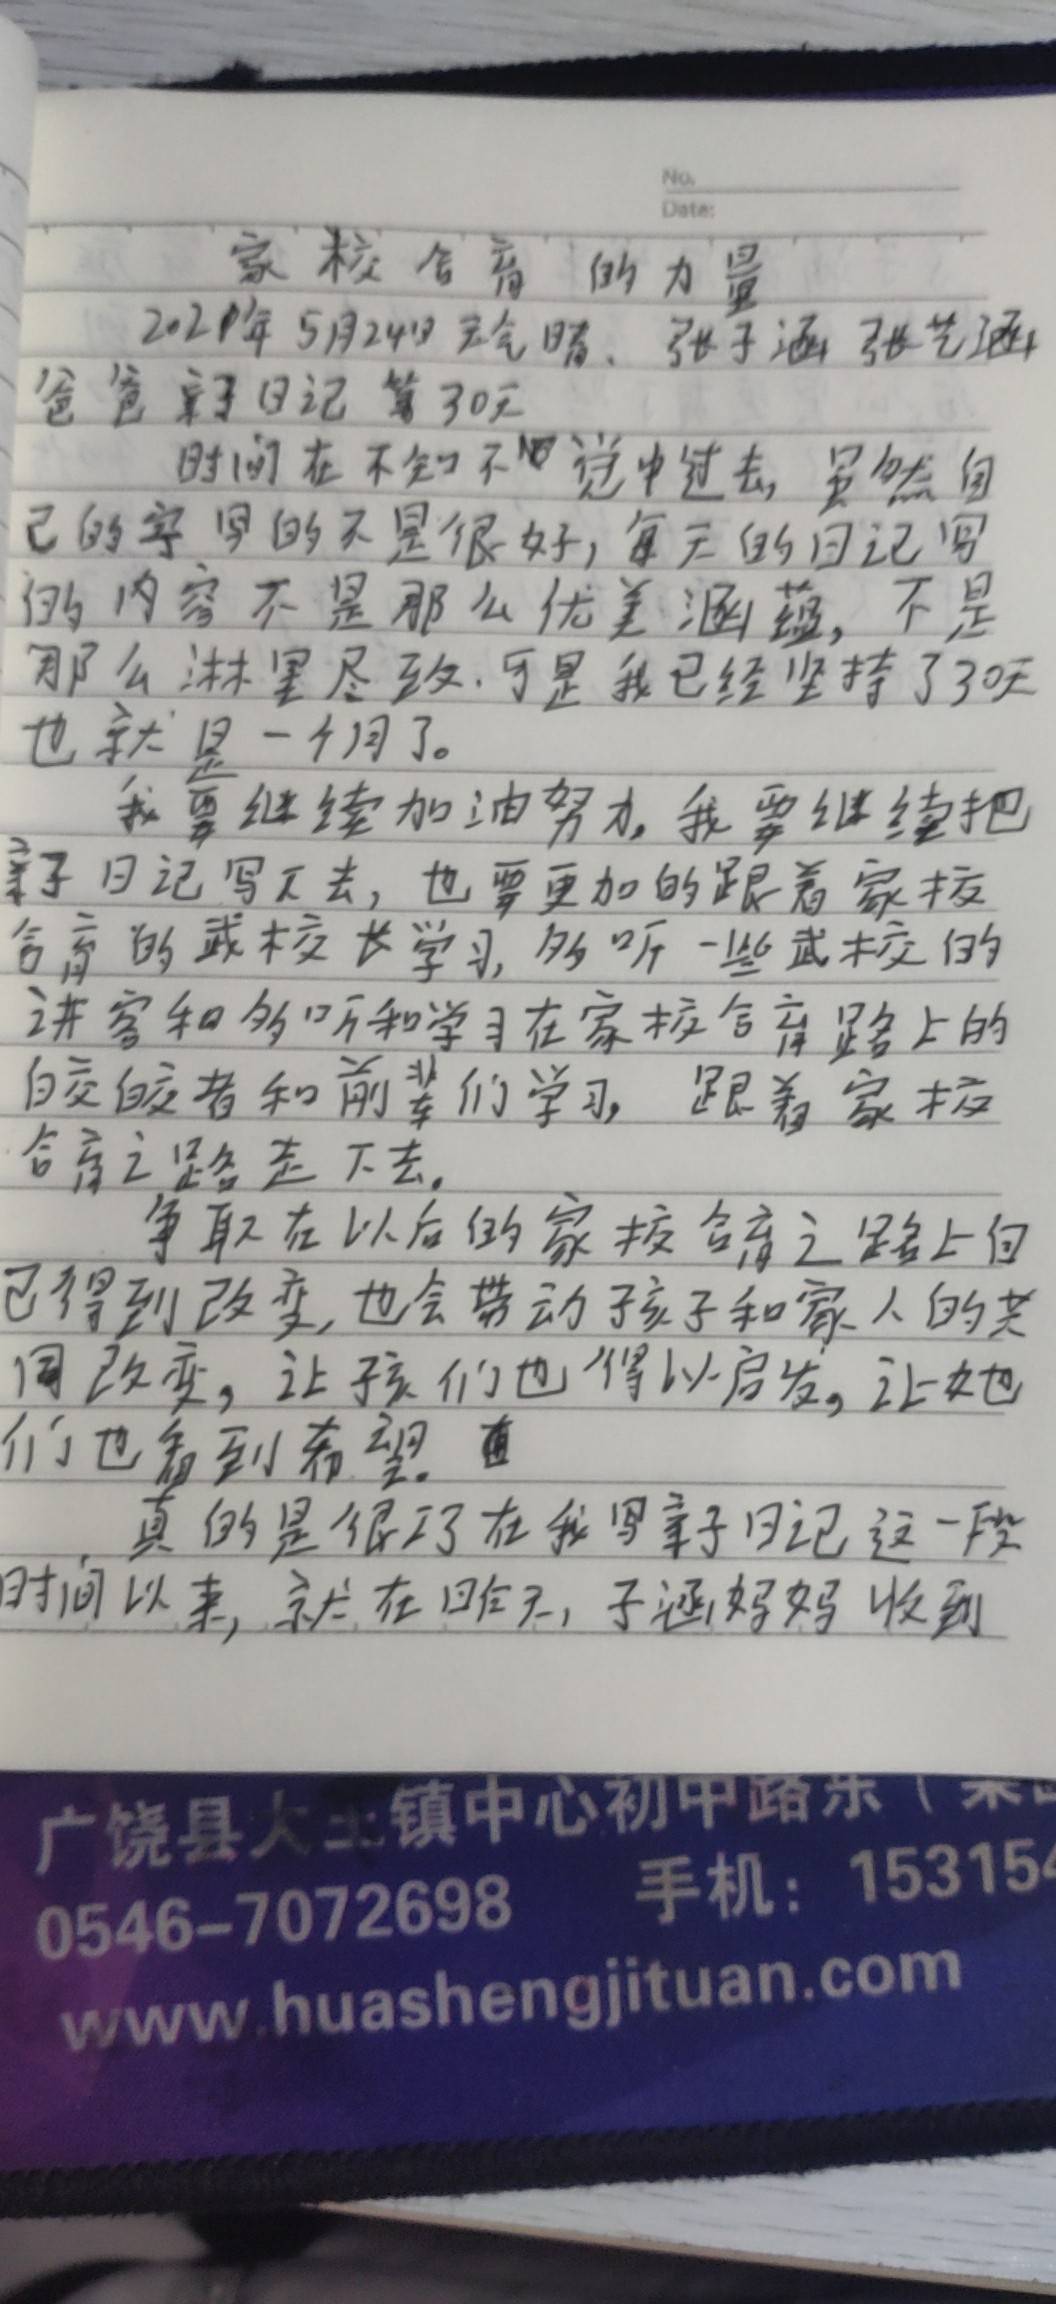 No.
Date:
家校合育的力量
2021年5月24日天气晴、张子涵张艺涵
爸爸亲子日记第30天
时间在不知不觉中过去,虽然自
己的字写的不是很好,每天的日记写
的内容不是那么优美涵蕴,不是
那么淋里尽致.可是我已经坚持了30天
也就是一个月了。
我要继续加油努力,我要继续把
亲子日记写下去,也要更加的跟着家校
合育的武校长学习,多听一些武校的
讲客和多听和学习在家校合育路上的
皎皎者和前辈们学习,跟着家校
合育之路走下去。
争取在以后的家校合育之路上自
己得到改变,也会带动孩子和家人的共
同改变,让孩们也得以启发,让她
们也看到希望。
真的是很巧在我写亲子日记这一段
时间以来,就在昨天,子涵妈妈收到
广饶县大王镇中心初中路东(
0546-7072698 手机:15315
www.huashengjituan.com